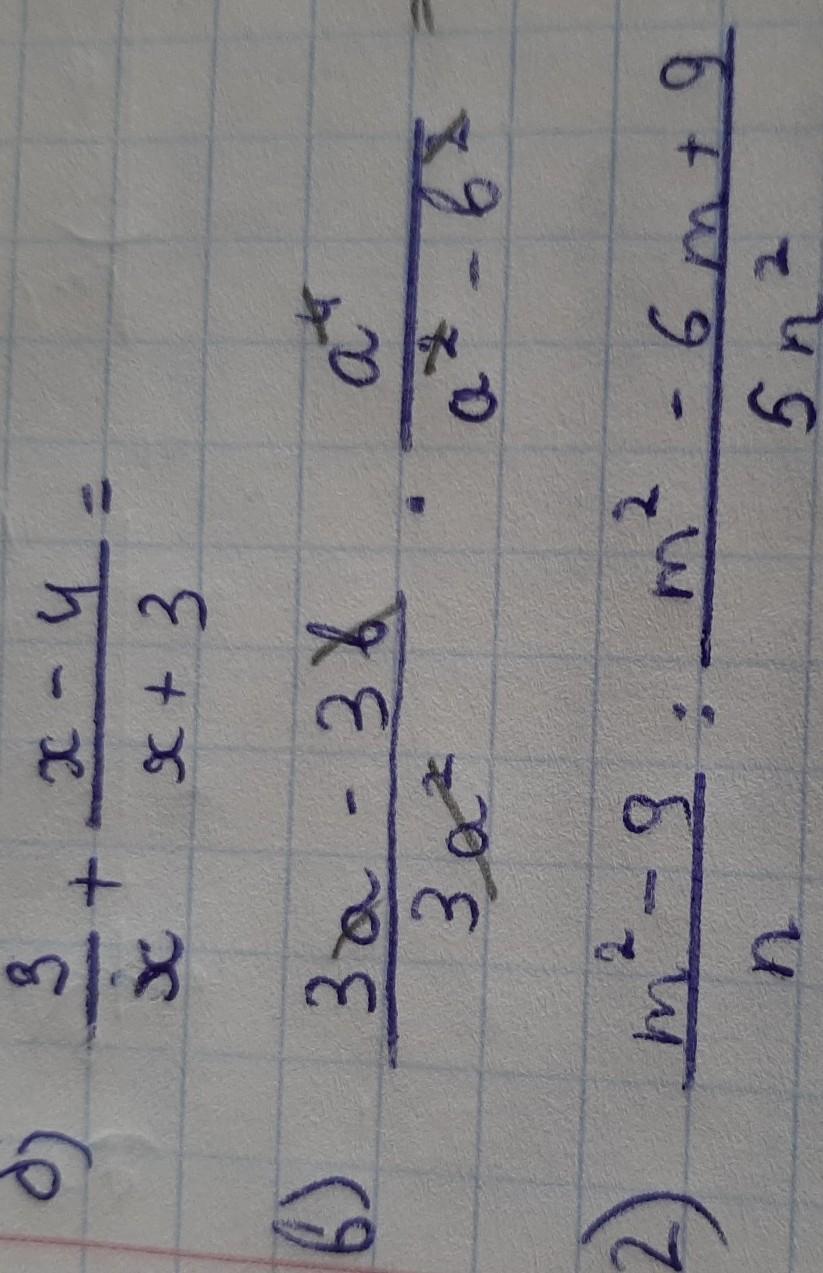 б) 3/x + (x - 4)/(x + 3) =
в) (3a - 3b)/(3a²) · a⁴/(a² - b²) =
г) (m² - 9)/n : (m² - 6m + 9)/(5n²)